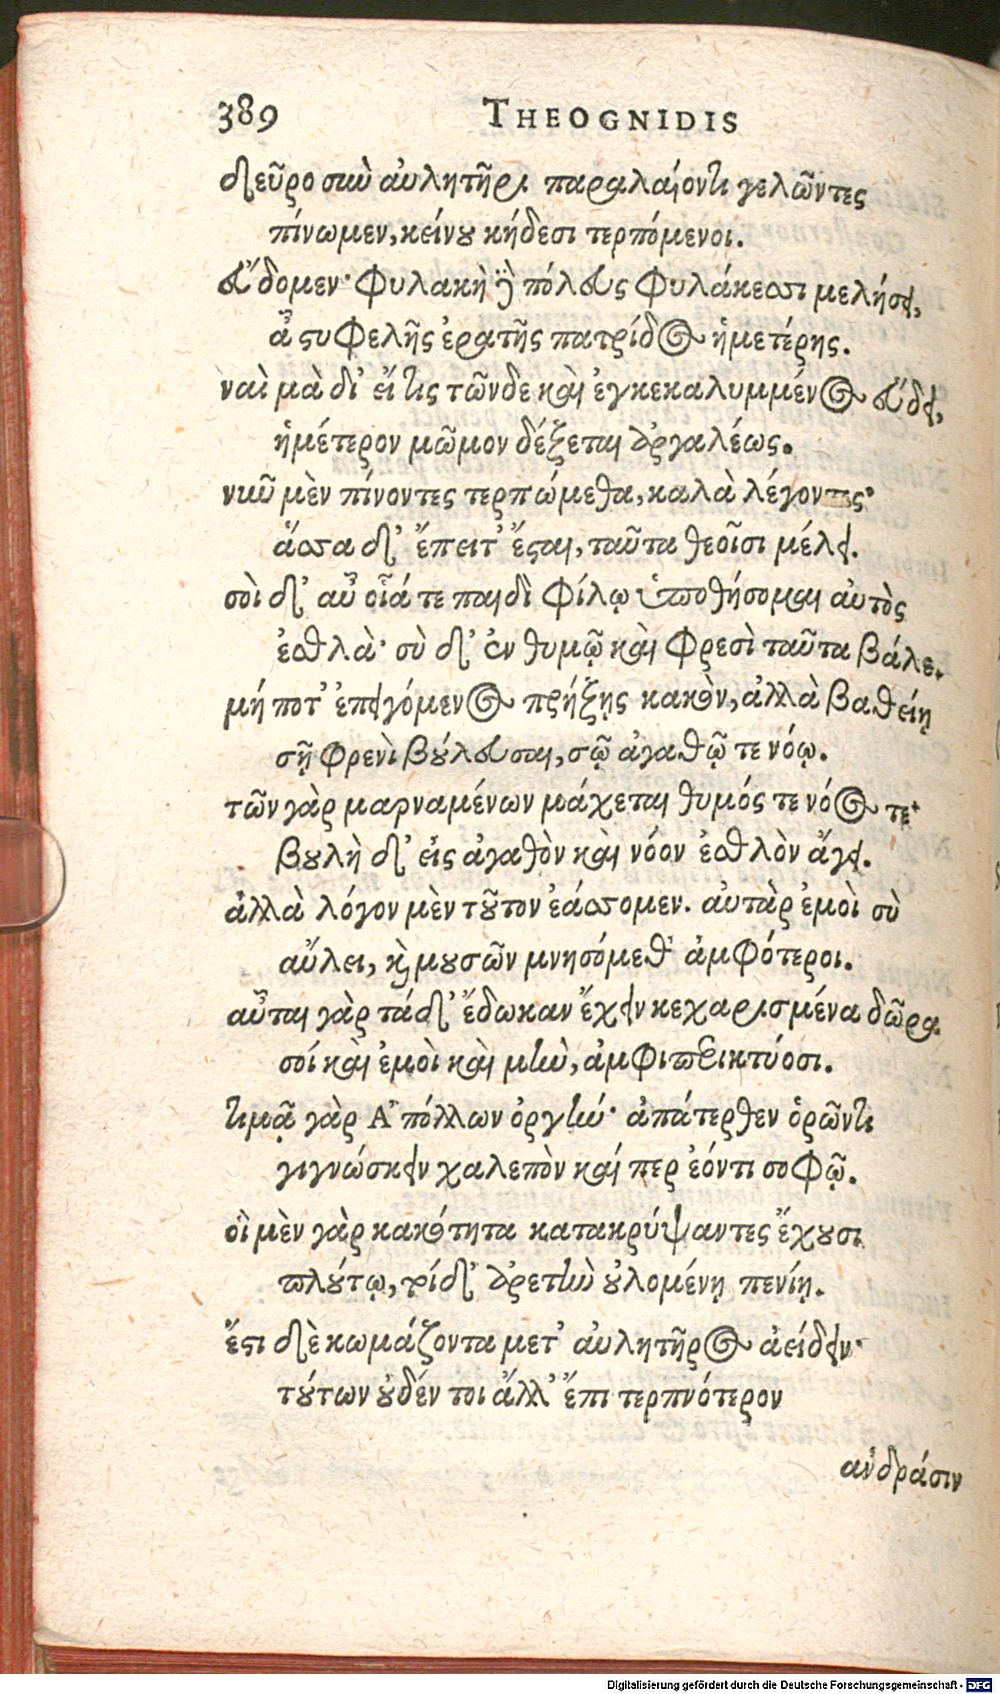 389 THEOGNIDIS
δεῦρο σὺν αὐλητῆρι παρακλαίοντι γελῶντες
πίνωμεν, κείνου κήδεσι τερπόμενοι.
εὕδομεν· φυλακὴ δὲ πόλευς φυλάκεσσι μελήσει,
ἀστυφελῆς ἐρατῆς πατρίδος ἡμετέρης.
ναὶ μὰ δί' εἴ τις τῶνδε καὶ ἐγκεκαλυμμένος εὕδει,
ἡμέτερον μῶμον δέξεται ἀργαλέως.
νῦν μὲν πίνοντες τερπώμεθα, καλὰ λέγοντες·
ἅσσα δ' ἔπειτ' ἔσται, ταῦτα θεοῖσι μέλει.
σοὶ δ' αὖ οἷά τε παιδὶ φίλῳ ὑποθήσομαι αὐτὸς
ἐσθλὰ· σὺ δ' ἐν θυμῷ καὶ φρεσὶ ταῦτα βάλε.
μή ποτ' ἐπειγόμενος πρήξῃς κακὸν, ἀλλὰ βαθείῃ
σῇ φρενὶ βούλευσαι, σῷ ἀγαθῷ τε νόῳ.
τῶν γὰρ μαρναμένων μάχεται θυμός τε νόος τε·
βουλὴ δ' εἰς ἀγαθὸν καὶ νόον ἐσθλὸν ἄγει.
ἀλλὰ λόγον μὲν τοῦτον ἐάσσομεν. αὐτὰρ ἐμοὶ σὺ
αὔλει, καὶ μουσῶν μνησόμεθ' ἀμφότεροι.
αὗται γὰρ τάδ' ἔδωκαν ἔχειν κεχαρισμένα δῶρα
σοί καὶ ἐμοὶ καὶ μὴν, ἀμφιπερικτύοσι.
τιμᾷ γὰρ Ἀπόλλων ὀργήν· ἀπάτερθεν ὁρῶντι
γιγνώσκειν χαλεπὸν καί περ ἐόντι σοφῷ.
οἳ μὲν γὰρ κακότητα κατακρύψαντες ἔχουσι
πλούτῳ, τοὶ δ' ἀρετὴν οὐλομένῃ πενίῃ.
ἔστι δὲ κωμάζοντα μετ' αὐλητῆρος ἀείδειν·
τούτων οὐδέν τοι ἄλλ' ἔπι τερπνότερον
ανδράσιν
Digitalisierung gefördert durch die Deutsche Forschungsgemeinschaft - DFG